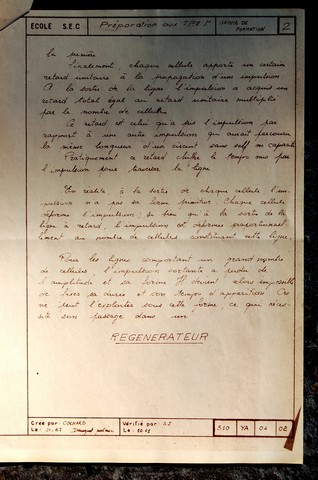 ECOLE S.E.C Préparation aux TP2 1° UNITE DE FORMATION 2
la première
Finalement, chaque cellule apporte un certain
retard unitaire à la propagation d'une impulsion
A la sortie de la ligne l'impulsion a acquis un
retard total égal au retard unitaire multiplié
par le nombre de cellules.
Ce retard est celui qu'a subi l'impulsion par
rapport à une autre impulsion qui aurait parcouru
la même longueur d'un circuit sans self ni capacité
Pratiquement ce retard chiffre le temps mis par
l'impulsion pour traverser la ligne
En réalité à la sortie de chaque cellule l'im-
pulsion n'a pas sa forme primitive. Chaque cellule
déforme l'impulsion, si bien qu'à la sortie de la
ligne à retard, l'impulsion est déformée proportionnel-
lement au nombre de cellules constituant cette ligne.
Pour les lignes comportant un grand nombre
de cellules, l'impulsion sortante a perdu de
l'amplitude et sa forme. Il devient alors impossible
de fixer sa durée et son temps d'apparition. On
ne peut l'exploiter sous cette forme ce qui néces-
site son passage dans un
REGENERATEUR
Créé par: COCHARD
Vérifié par: S.J
Le:
Le:
310 YA 04 02